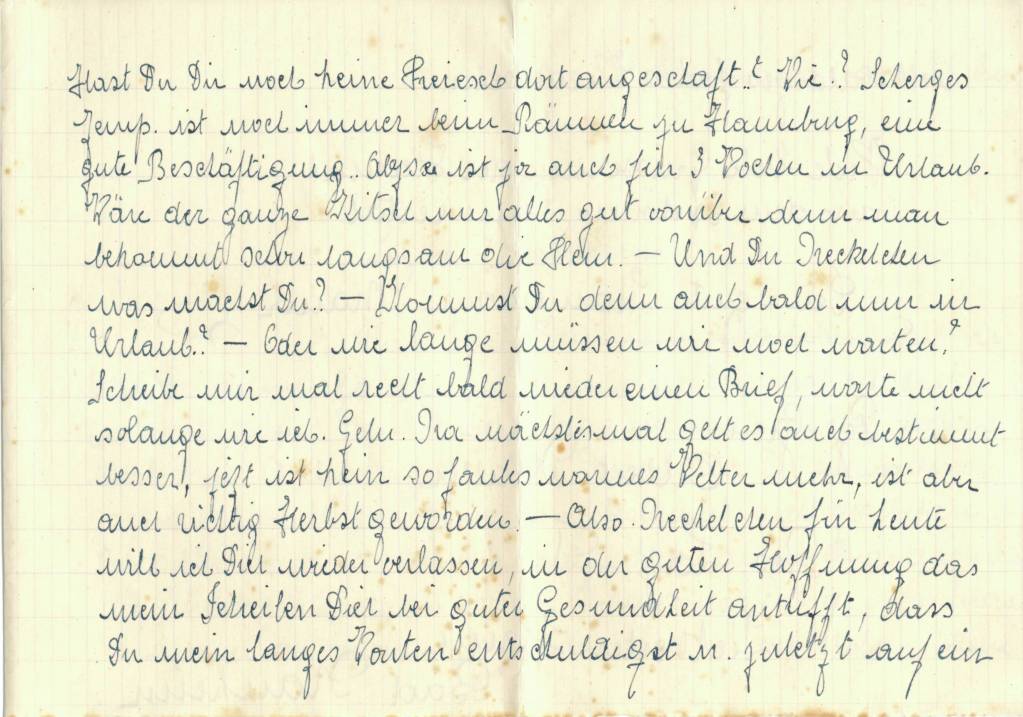 Hast Du Dir noch keine dort angeschaft..? Wie.? Scherges
Jemp. ist noch immer beim Räumen zu Hamburg, eine
gute Beschäftigung.. ist ja auch für 3 Wochen in Urlaub.
Wäre der ganze Kitsch nur alles gut vorüber denn man
bekommt schon langsam die Flem. — Und Du Neckelchen
was machst Du? — Kommst Du denn auch bald mim in
Urlaub.? — Oder wie lange müssen wir noch warten.?
Scheibe mir mal recht bald wieder einen Brief, warte nicht
solange wie ich. Geln. Na nächstesmal geht es auch bestimmt
besser, jetzt ist kein so faules warmes Wetter mehr, ist aber
auch richtig Herbst geworden. — Also. Neckelchen für heute
will ich Dich wieder verlassen, in der guten Hoffnung das
mein Scheiben Dich bei guter Gesundheit antrifft, dass
Du mein langes Warten entschuldigst u. zuletzt auf ein